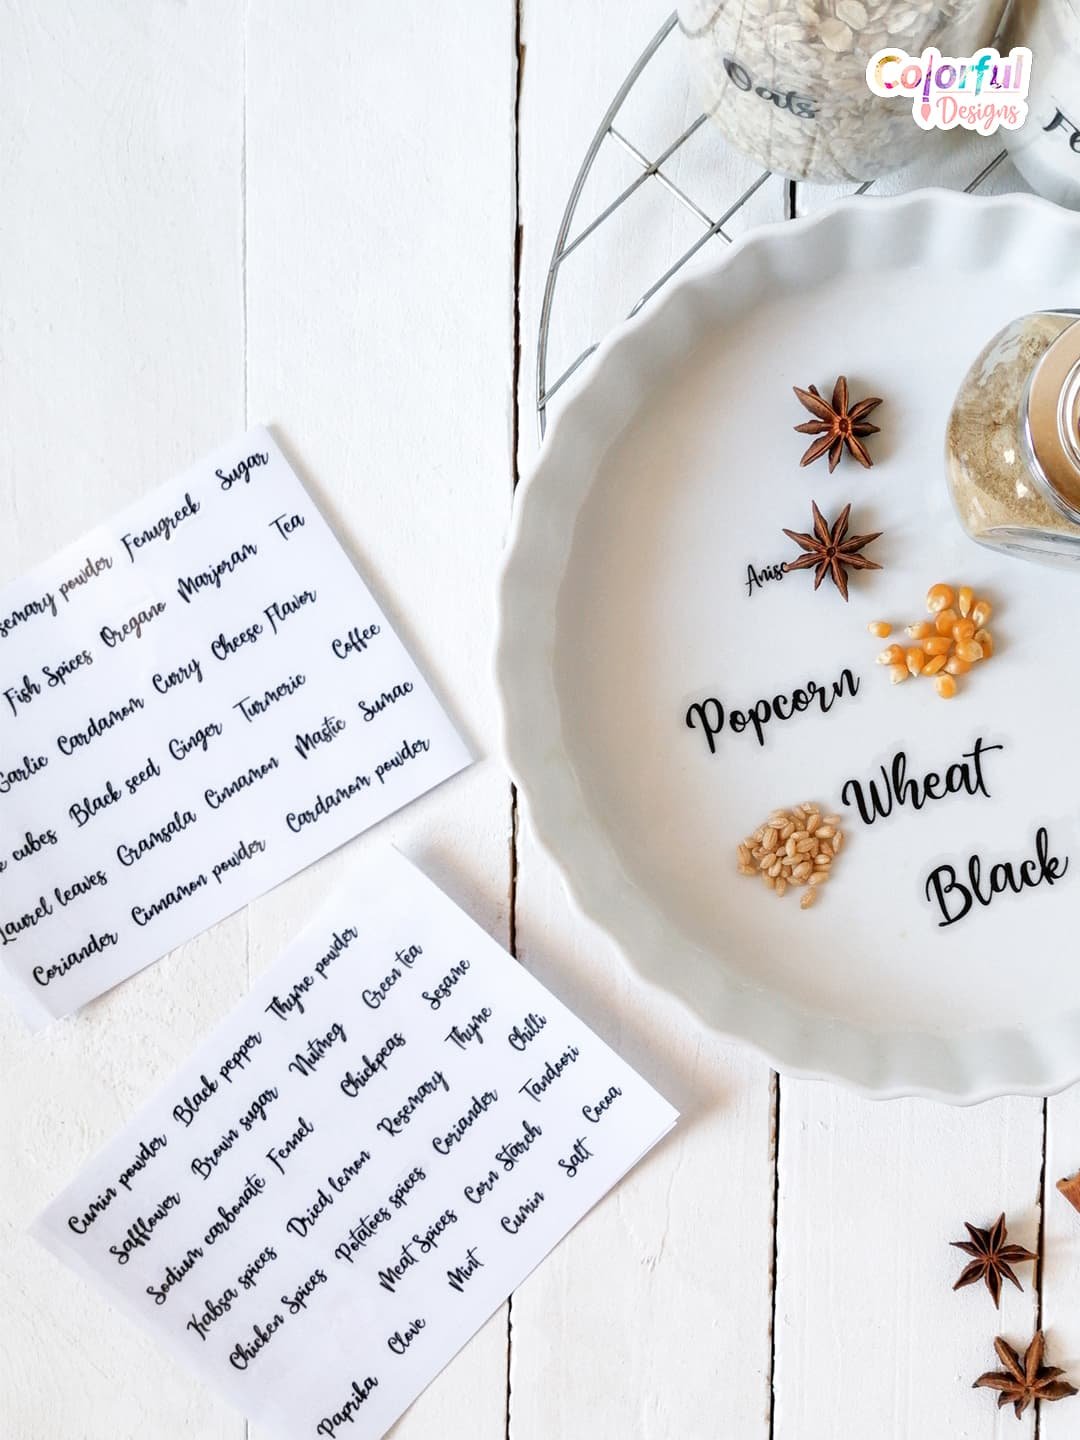 Colorful
Designs
Oats
Fe
Anise
Popcorn
Wheat
Black
semary powder Fenugreek Sugar
Fish Spices Oregano Marjoram Tea
Garlic Cardamom Curry Cheese Flavor
cubes Black seed Ginger Turmeric Coffee
Laurel leaves Gramsala Cinnamon Mastic Sumac
Coriander Cinnamon powder Cardamom powder
Cumin powder Black pepper Thyme powder
Safflower Brown sugar Nutmeg Green tea
Sodium carbonate Fennel Chickpeas Sesame
Kabsa spices Dried lemon Rosemary Thyme
Chicken Spices Potatoes spices Coriander Chilli
Meat Spices Corn Starch Tandoori
Paprika Clove Mint Cumin Salt Cocoa